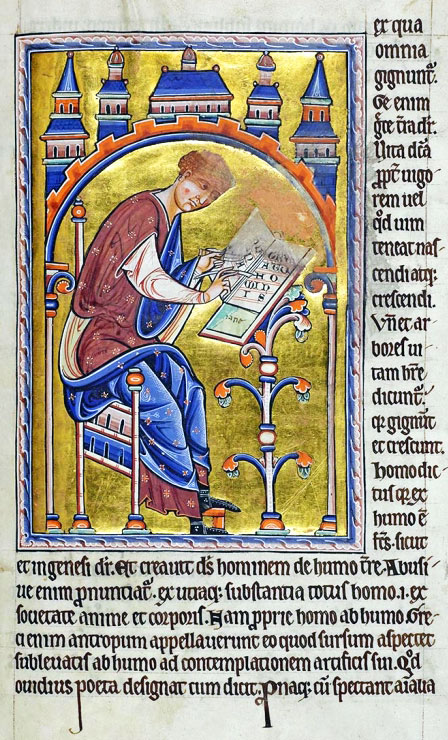 ex qua
omnia
gignunt᷑.
Ge enim
g̃te t̃ra dr̃.
Vita dc̄a
ꝓpt̃ uigo
rem uel
qd̕ uim
teneat nas
cendi atq;
crescendi.
Vn̄ et ar
bores ui
tam hr̃e
dicunt᷑.
qr gignunt᷑
et crescunt.
Homo dic
tus qr ex
humo ē
fc̄s. sicut
et in genesi dr̃. Et creauit ds̄ hominem de humo t̃re. Abusi
ue enim pronuntiat᷑. ex utraq; substantia totus homo .i. ex
societate anime et corporis. Nam proprie homo ab humo. Gre
ci enim antropum appellauerunt eo quod sursum aspectet
subleuatis ab humo ad contemplationem artificis sui. Qd̕
ouidius poeta designat cum dicit. Pnaq; cū spectant aīalia